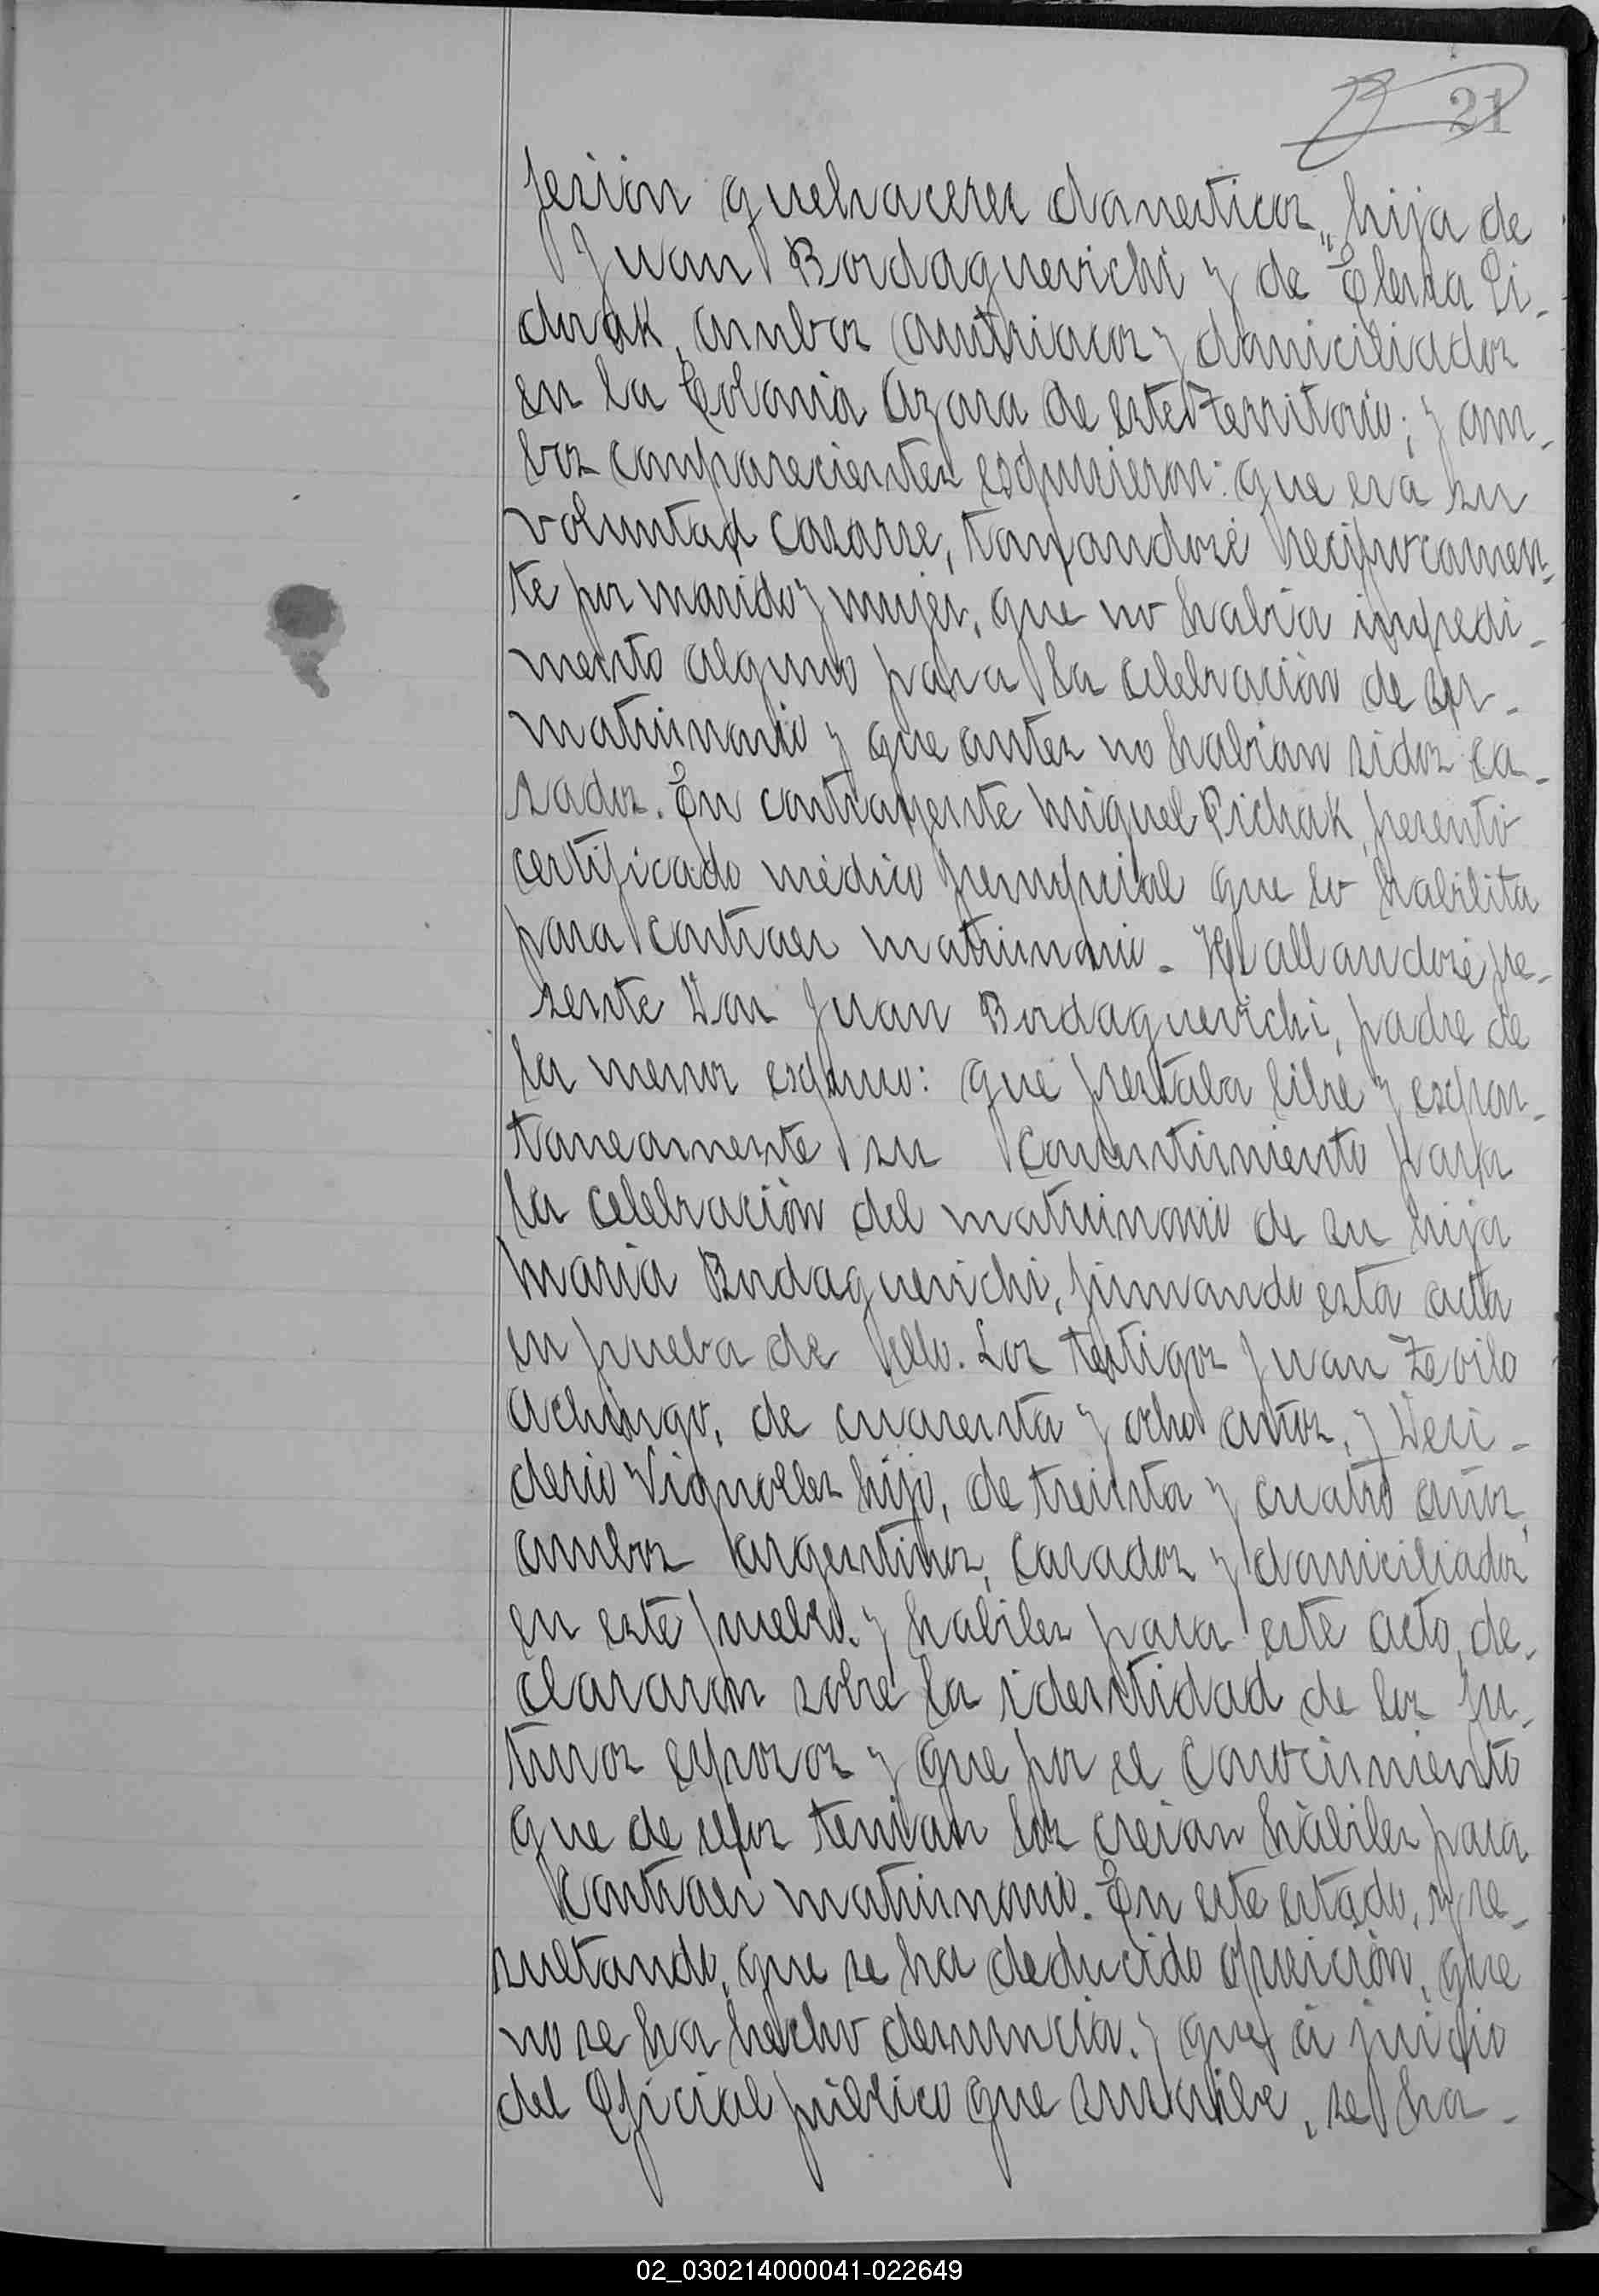 21
fesión quehaceres domesticos, hija de
Juan Bordaguevichi y de Elena
ambos austriacos y domiciliados
en la Colonia Azara de este Territorio; y am-
bos comparecientes expusieron: que era su
voluntad casarse, tomandosé reciprocamen-
te por marido y mujer, que no habia impedi-
mento alguno para la celebración de su
matrimonio y que antes no habian sidos ca-
sados. En contrayente Miguel Pichak, presentó
certificado médico prenupcial que lo habilita
para contraer matrimonio. Hallandosé pre-
sente Don Juan Bordaguevichi, padre de
la menor expuso: que prestaba libre y espon-
taneamente su consentimiento para
la celebración del matrimonio de su hija
Maria Bordaguevichi, firmando esta acta
en prueba de ello. Los testigos Juan
de cuarenta y ocho años, y Desi-
derio Vignolles hijo, de treinta y cuatro años,
ambos argentinos, casados y domiciliados
en este pueblo. y habiles para este acto, de-
clararon sobre la identidad de los fu-
turos esposos y que por el conocimiento
que de ellos tenian los creian hábiles para
contraer matrimonio. En este estado, y re-
sultando, que se ha deducido oposición, que
no se ha hecho denuncia. y que á juicio
del Oficial público que suscribe, se ha-
02_030214000041-022649